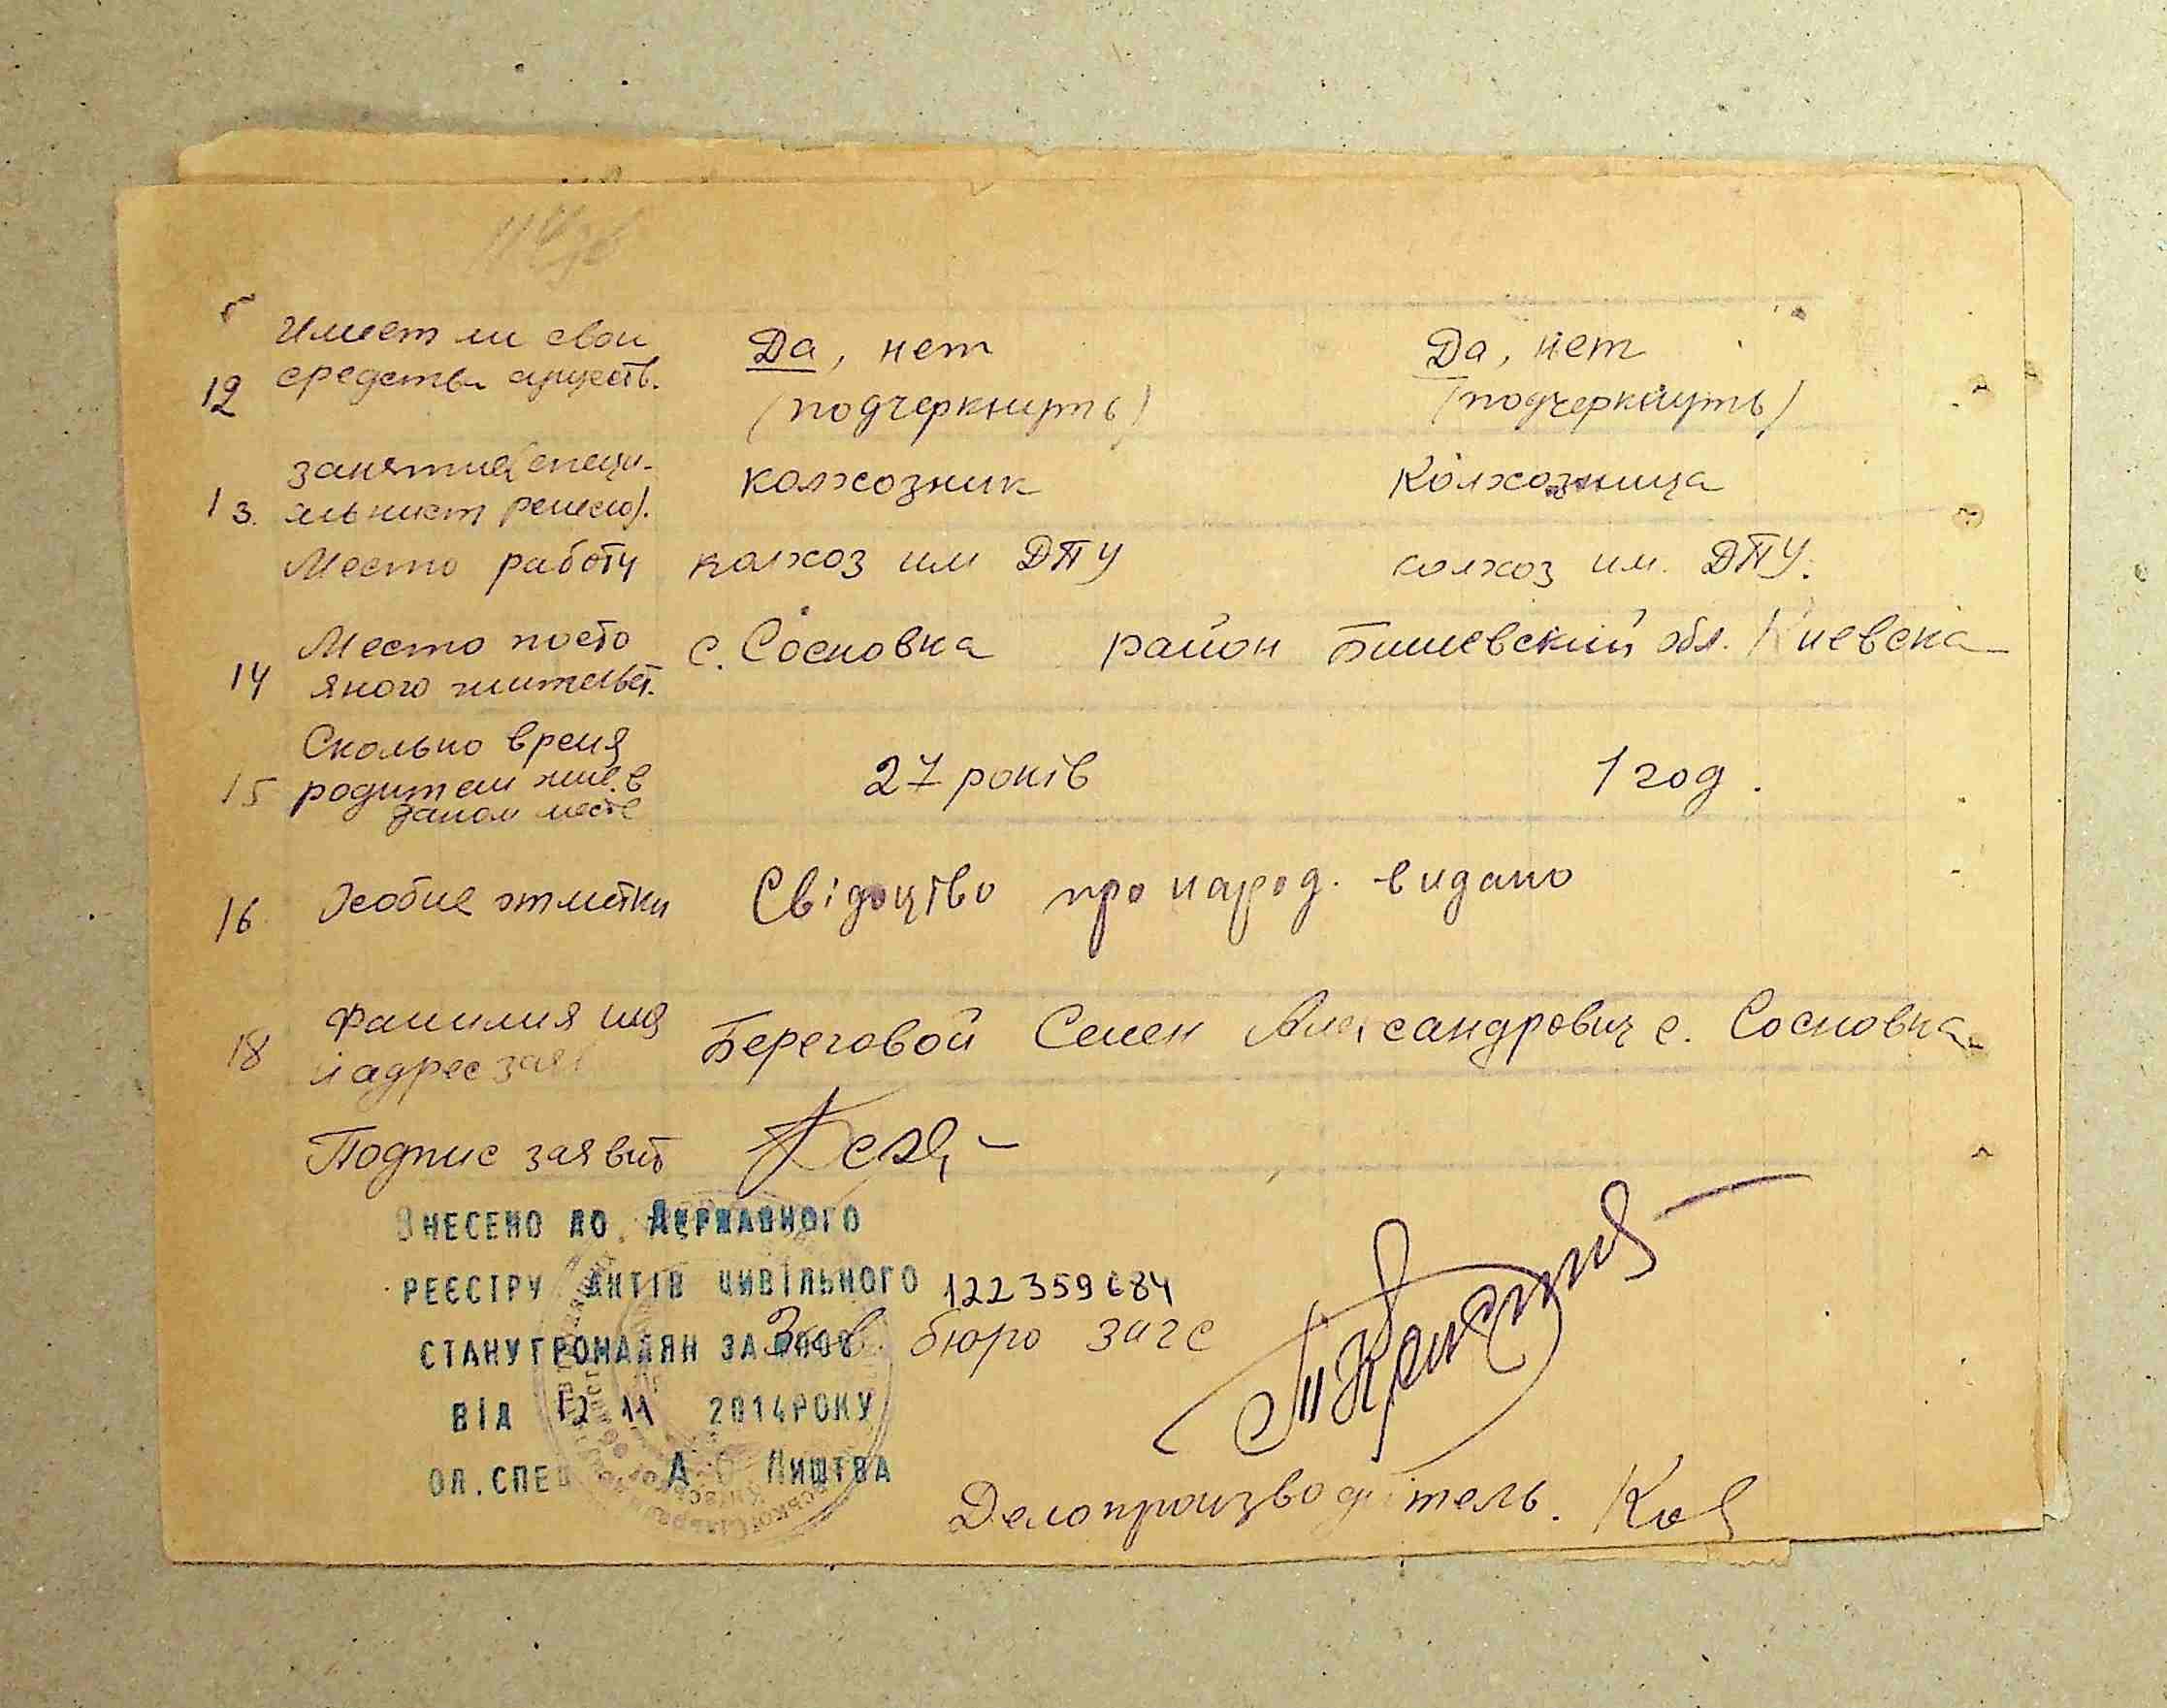 Имеет ли свои
12 средства существ.
Да, нет
(подчеркнуть)
Да, нет
(подчеркнуть)
занятие (специ-
13. яльнист ремесло).
колхозник
Колхозница
Место работу
колхоз им ДПУ
колхоз им. ДПУ.
14 Место посто
яного жительст.
с. Сосновка район Бишевский обл. Киевска
Сколько время
15 родители жив. в
даном месте
27 років
1 год.
16 Особие отметки
Свідоцтво про народ. видано
18 Фамилия имя
и адрес заяв
Береговой Семен Александрович с. Сосновка
Подпис заявит
Внесено до Державного
реєстру актів цивільного 122359684
стану громадян за
Зав. бюро загс
від 12 11 2014 року
Лиштва
Делопроизводитель.